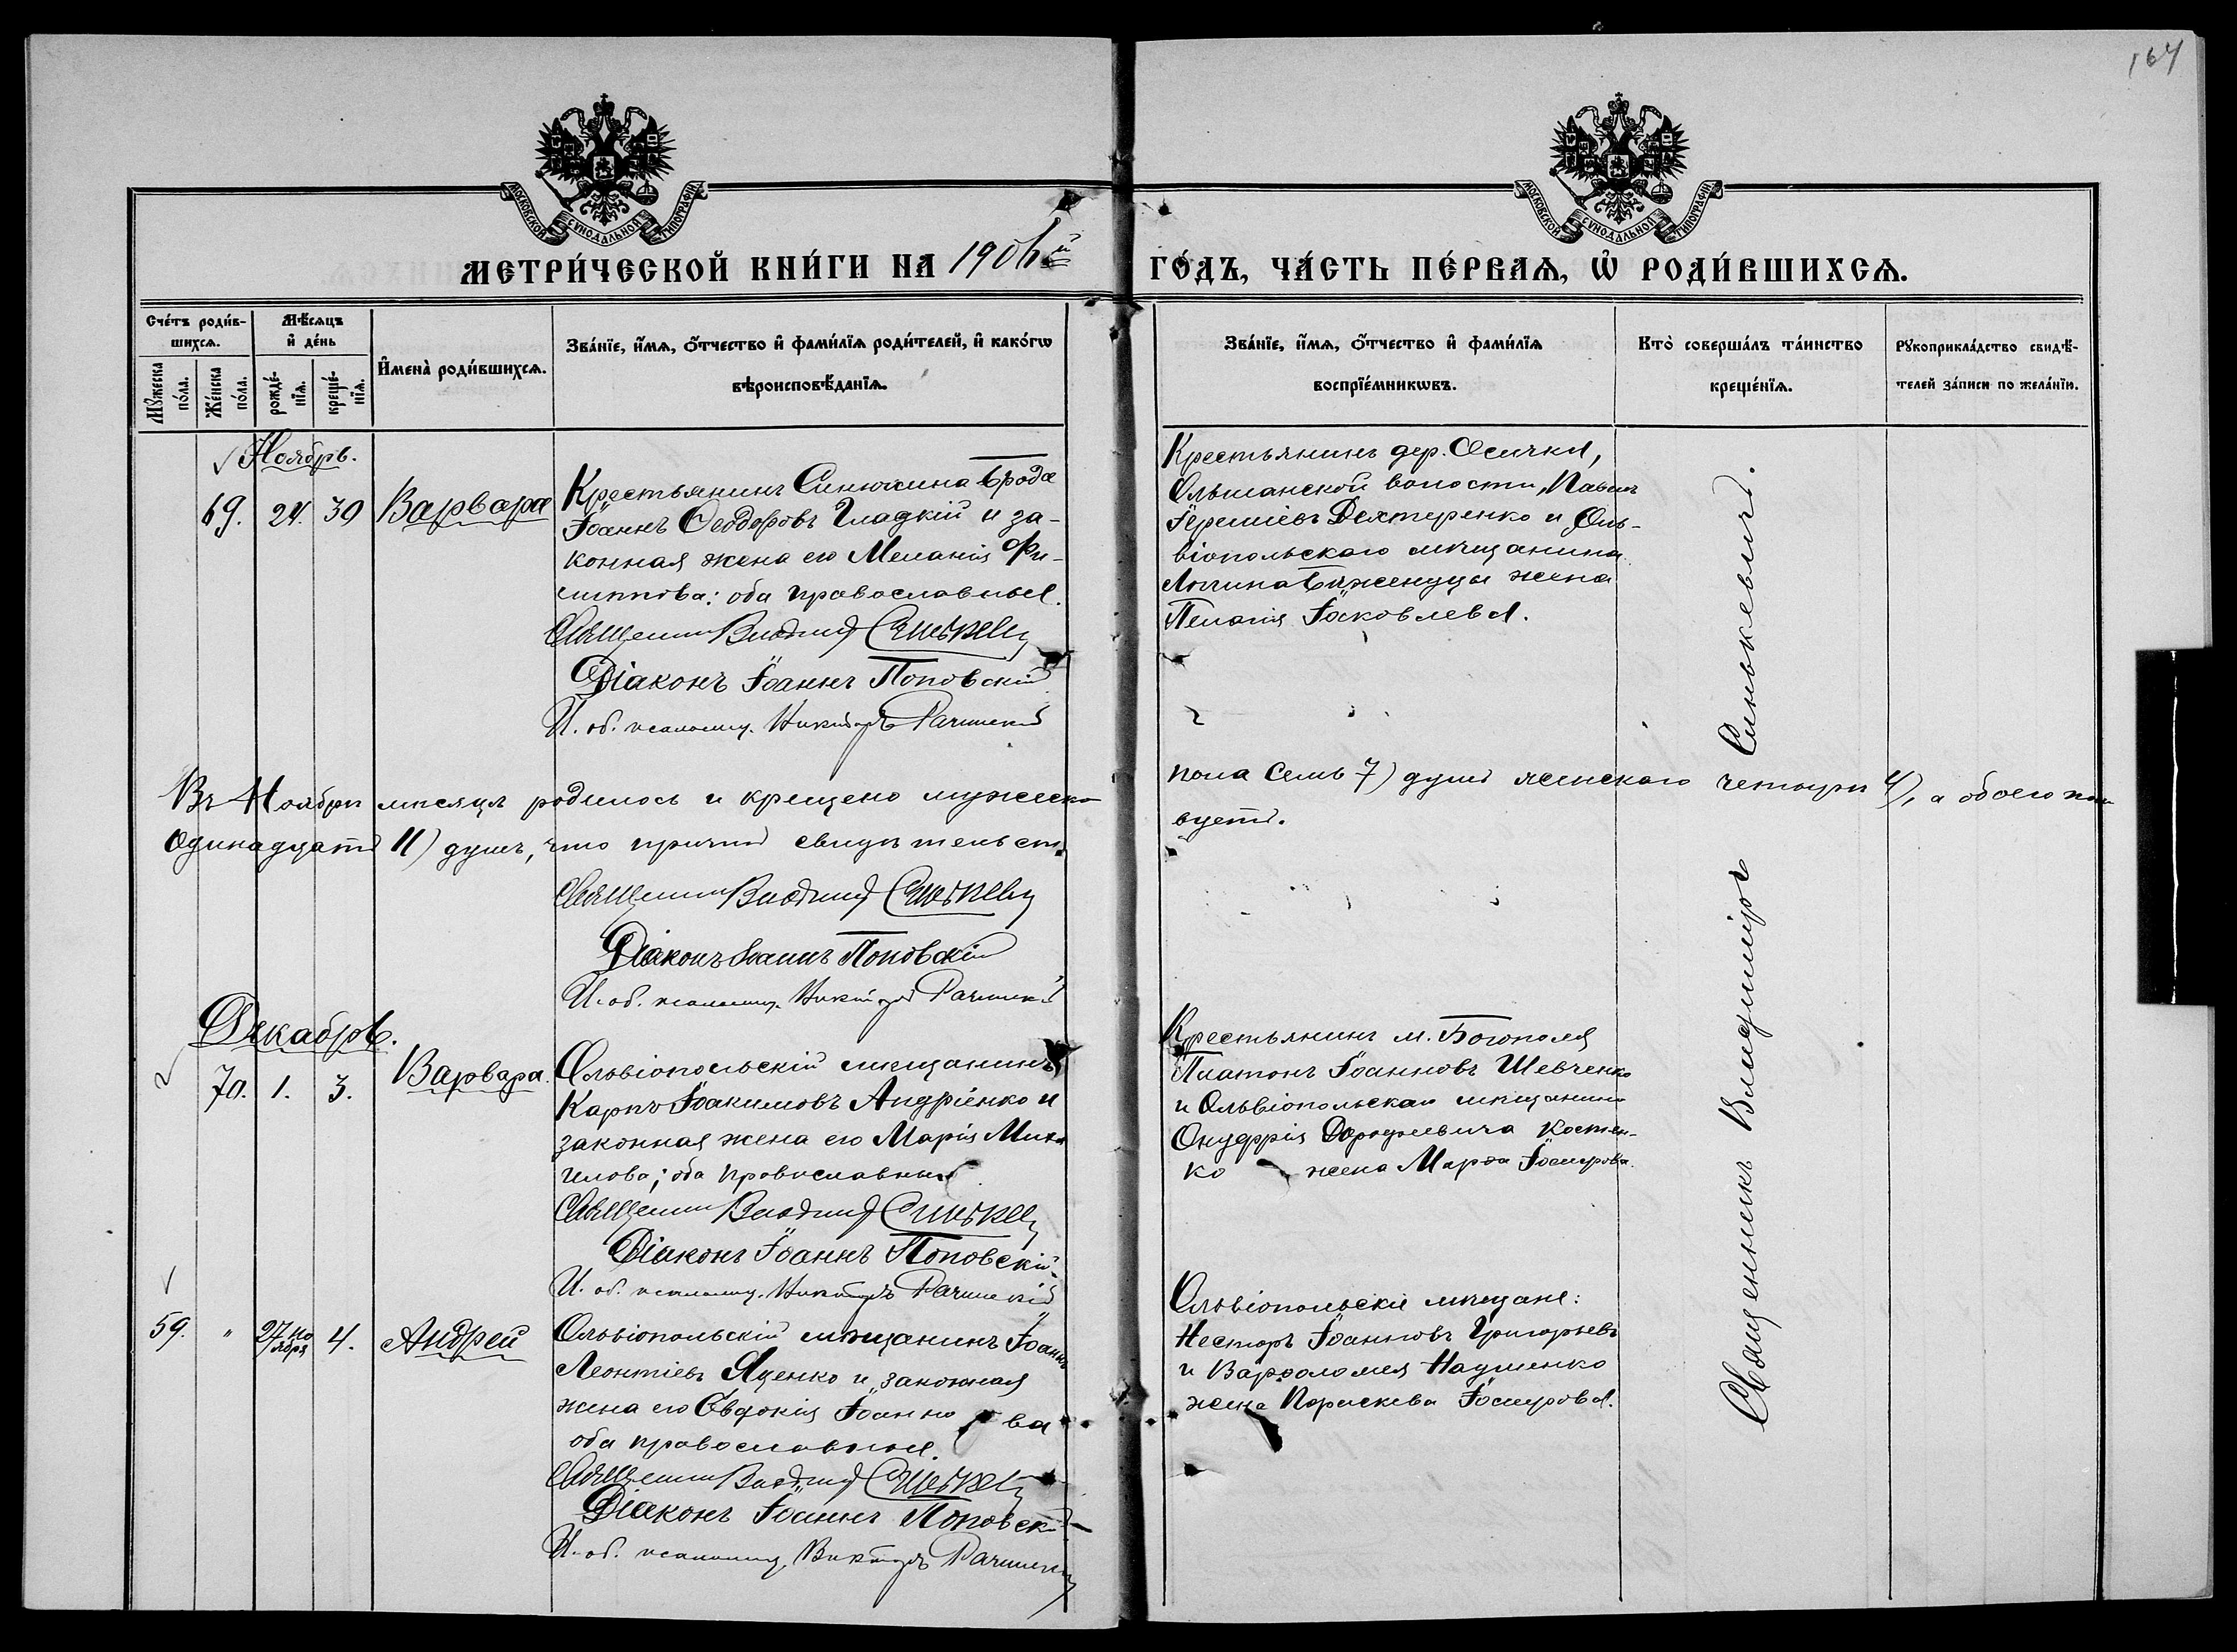 164
МОСКОВСКОЙ СѴНОДАЛЬНОЙ ТИПОГРАФІИ
МОСКОВСКОЙ СѴНОДАЛЬНОЙ ТИПОГРАФІИ
МЕТРИ́ЧЕСКОЙ КНИ́ГИ НА 1906й ГО́ДЪ, ЧА́СТЬ ПЕ́РВАѦ, Ѡ҆ РОДИ́ВШИХСѦ.
Сче́тъ роди́в-
шихсѧ.
Мꙋжеска по́ла.
Же́нска по́ла.
Мѣ́сѧцъ
и҆ де́нь
рожде́-
нїѧ.
креще́-
нїѧ.
И҆мена̀ роди́вшихсѧ.
Зва́нїе, и҆́мѧ, ѻ҆́тчество и҆ фами́лїѧ роди́телей, и҆ како́гѡ
вѣроисповѣ́данїѧ.
Зва́нїе, и҆́мѧ, ѻ҆́тчество и҆ фами́лїѧ
воспрїе́мникѡвъ.
Кто̀ соверша́лъ та́инство
креще́нїѧ.
Рꙋкоприкла́дство свидѣ́-
телей за́писи по жела́нїю.
Ноябрь.
69. 24. 30 Варвара
Крестьянинъ Синюхина Брода
Іоаннъ Ѳеодоровъ Гладкій и за-
конная жена его Меланія Фи-
липпова: оба православные.
Священникъ Владиміръ Синькевичъ
Діаконъ Іоаннъ Поповскій
И. об. псаломщ. Викторъ Рачинскій
Крестьянинъ дер. Осички,
Ольшанской волости, Павелъ
Іереміевъ Дехтеренко и Оль-
віопольскаго мѣщанина
жена
Пелагія Іаковлева.
Въ Ноябрѣ мѣсяцѣ родилось и крещено мужеска пола семь 7) душъ женскаго четыре 4), а обоего пола
одинадцать 11) душъ, что причтъ свидѣтельст вуетъ.
Священникъ Владиміръ Синькевичъ
Діаконъ Іоаннъ Поповскій
И. об. псаломщ. Викторъ Рачинскій
Декабрь.
70. 1. 3. Варвара.
Ольвіопольскій мѣщанинъ
Карпъ Іоакимовъ Андріенко и
законная жена его Марія Миха
илова; оба православные
Священникъ Владиміръ Синькевичъ
Діаконъ Іоаннъ Поповскій
И. об. псаломщ. Викторъ Рачинскій
Крестьянинъ м. Богополя
Платонъ Іоанновъ Шевченко
и Ольвіопольскаго мѣщанина
Онуфрія Костен-
ко жена Марѳа Іосифова.
59. " 27 но
ября 4. Андрей
Ольвіопольскій мѣщанинъ Іоаннъ
Леонтіевъ Яценко и законная
жена его Евдокія Іоанно ва
оба православные.
Священникъ Владиміръ Синькевичъ
Діаконъ Іоаннъ Поповскій
И. об. псаломщ. Викторъ Рачинскій
Ольвіопольскіе мѣщане:
Несторъ Іоанновъ Григорьевъ
и Варѳоломея Науменко
жена Параскева Іосифова.
Священникъ Владиміръ Синькевичъ.